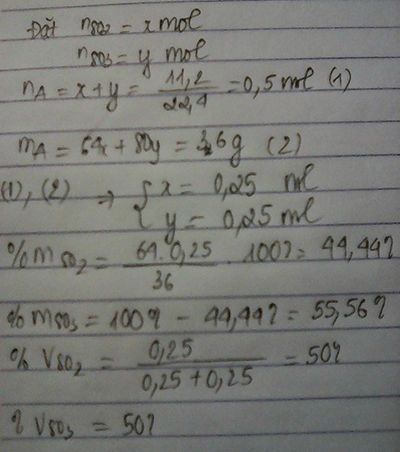 Đặt nSO2 = x mol
nSO3 = y mol
nA = x+y = 11,2/22,4 = 0,5 mol (1)
mA = 64x + 80y = 36g (2)
(1), (2) => { x = 0,25 mol
y = 0,25 mol
%mSO2 = 64.0,25/36 . 100% = 44,44%
%mSO3 = 100% - 44,44% = 55,56%
%VSO2 = 0,25/0,25+0,25 = 50%
%VSO3 = 50%